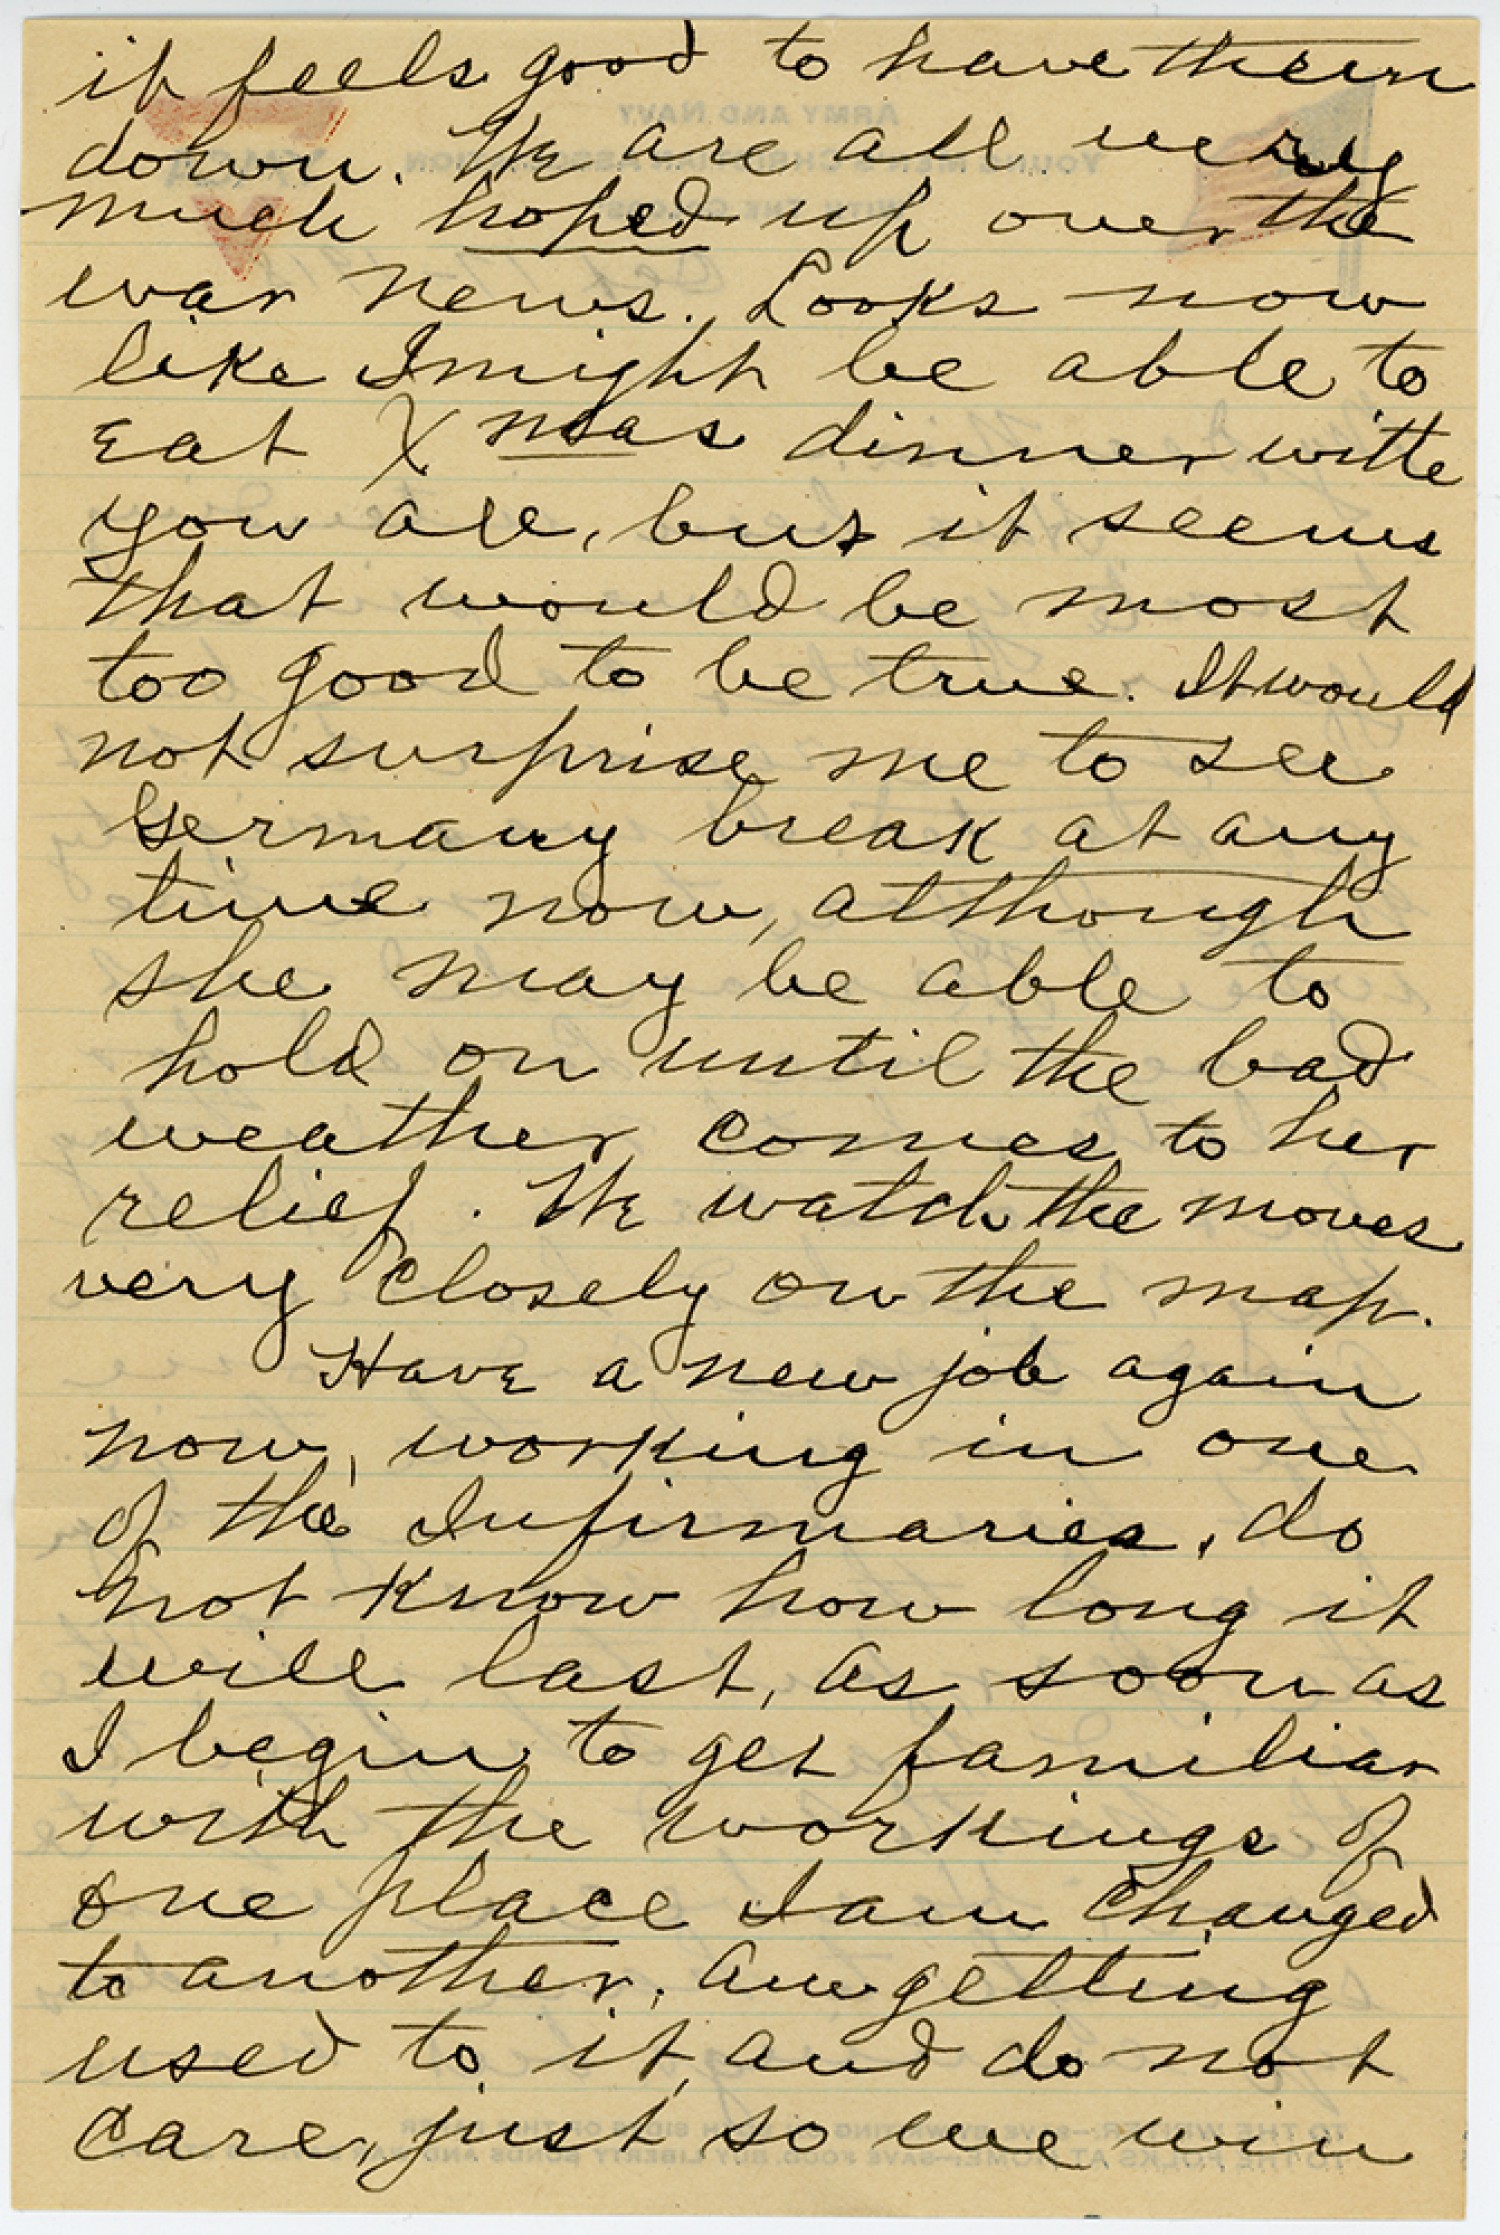 it feels good to have them
down. We are all very
much hoped up over the
war news. Looks now
like I might be able to
eat Xmas dinner with
you all, but it seems
that would be most
too good to be true. It would
not surprise me to see
Germany break at any
time now, although
she may be able to
hold on until the bad
weather comes to her
relief. We watch the moves
very closely on the map.
Have a new job again
now, working in one
of the Infirmaries, do
not know how long it
will last, as soon as
I begin to get familiar
with the workings of
one place I am changed
to another. Am getting
used to it, and do not
care, just so we win